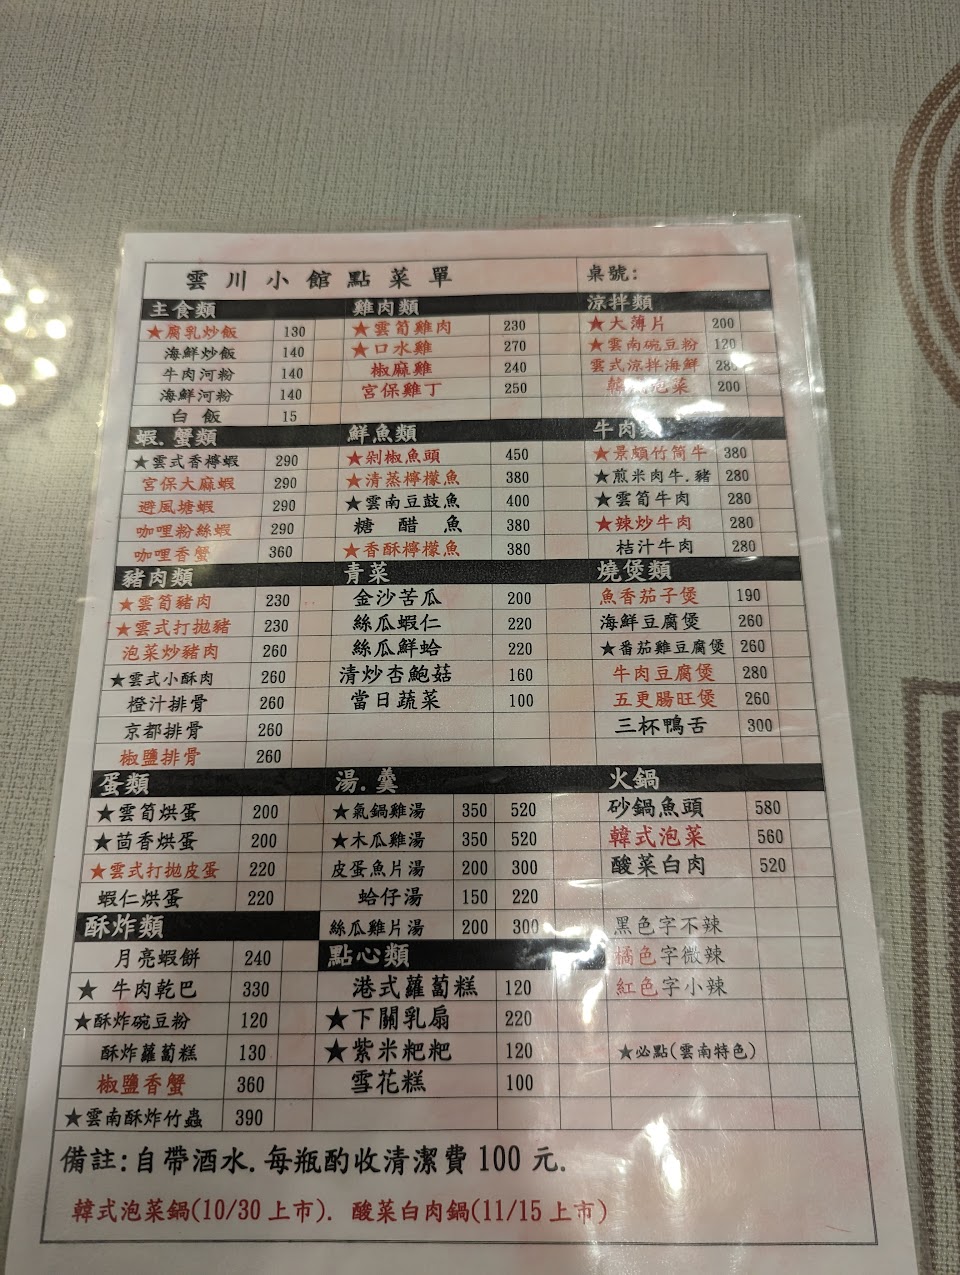 雲川小館點菜單 桌號:
主食類 雞肉類 涼拌類
★腐乳炒飯 130 ★雲筍雞肉 230 ★大薄片 200
海鮮炒飯 140 ★口水雞 270 ★雲南碗豆粉 120
牛肉河粉 140 椒麻雞 240 雲式涼拌海鮮 280
海鮮河粉 140 宮保雞丁 250 韓式泡菜 200
白飯 15
蝦.蟹類 鮮魚類 牛肉類
★雲式香檸蝦 290 ★剁椒魚頭 450 ★景頗竹筒牛 380
宮保大麻蝦 290 ★清蒸檸檬魚 380 ★煎米肉牛.豬 280
避風塘蝦 290 ★雲南豆鼓魚 400 ★雲筍牛肉 280
咖哩粉絲蝦 290 糖醋魚 380 ★辣炒牛肉 280
咖哩香蟹 360 ★香酥檸檬魚 380 桔汁牛肉 280
豬肉類 青菜 燒煲類
★雲筍豬肉 230 金沙苦瓜 200 魚香茄子煲 190
★雲式打拋豬 230 絲瓜蝦仁 220 海鮮豆腐煲 260
泡菜炒豬肉 260 絲瓜鮮蛤 220 ★番茄雞豆腐煲 260
★雲式小酥肉 260 清炒杏鮑菇 160 牛肉豆腐煲 280
橙汁排骨 260 當日蔬菜 100 五更腸旺煲 260
京都排骨 260 三杯鴨舌 300
椒鹽排骨 260
蛋類 湯.羹 火鍋
★雲筍烘蛋 200 ★氣鍋雞湯 350 520 砂鍋魚頭 580
★茴香烘蛋 200 ★木瓜雞湯 350 520 韓式泡菜 560
★雲式打拋皮蛋 220 皮蛋魚片湯 200 300 酸菜白肉 520
蝦仁烘蛋 220 蛤仔湯 150 220
酥炸類 絲瓜雞片湯 200 300 黑色字不辣
月亮蝦餅 240 點心類 橘色字微辣
★ 牛肉乾巴 330 港式蘿蔔糕 120 紅色字小辣
★酥炸碗豆粉 120 ★下關乳扇 220
酥炸蘿蔔糕 130 ★紫米粑粑 120 ★必點(雲南特色)
椒鹽香蟹 360 雪花糕 100
★雲南酥炸竹蟲 390
備註:自帶酒水.每瓶酌收清潔費100元.
韓式泡菜鍋(10/30上市). 酸菜白肉鍋(11/15上市)